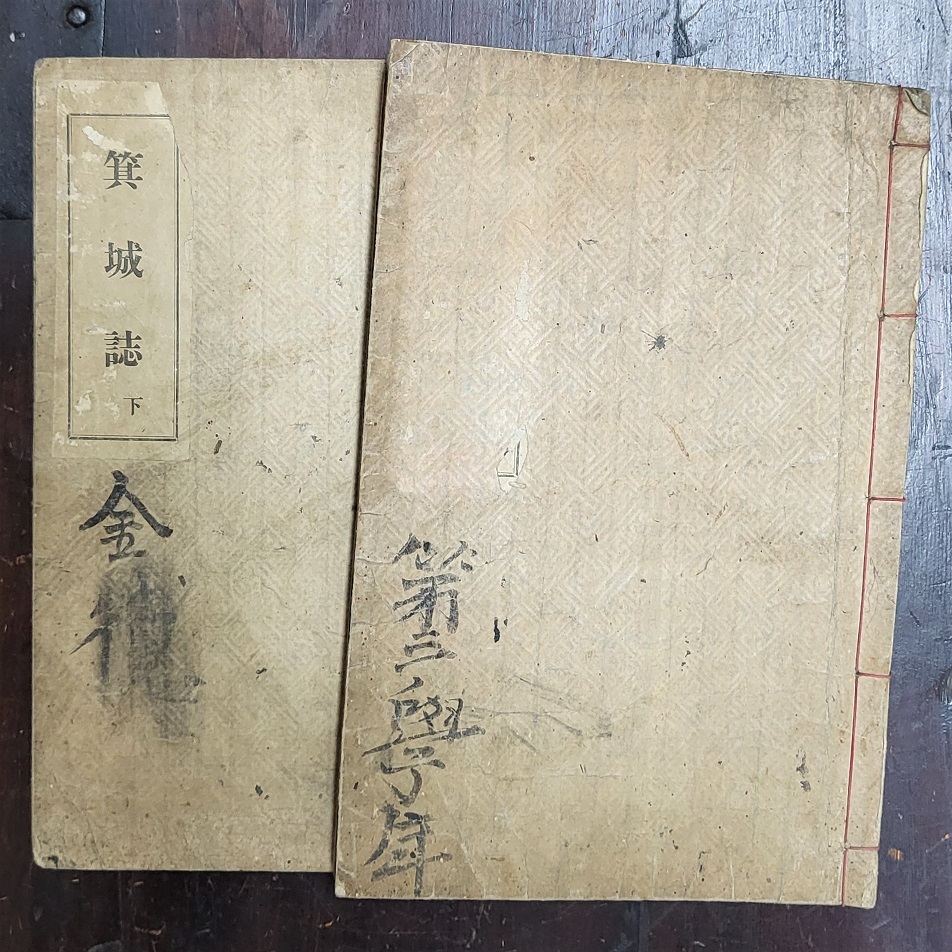 箕城誌 下
金
第三學年